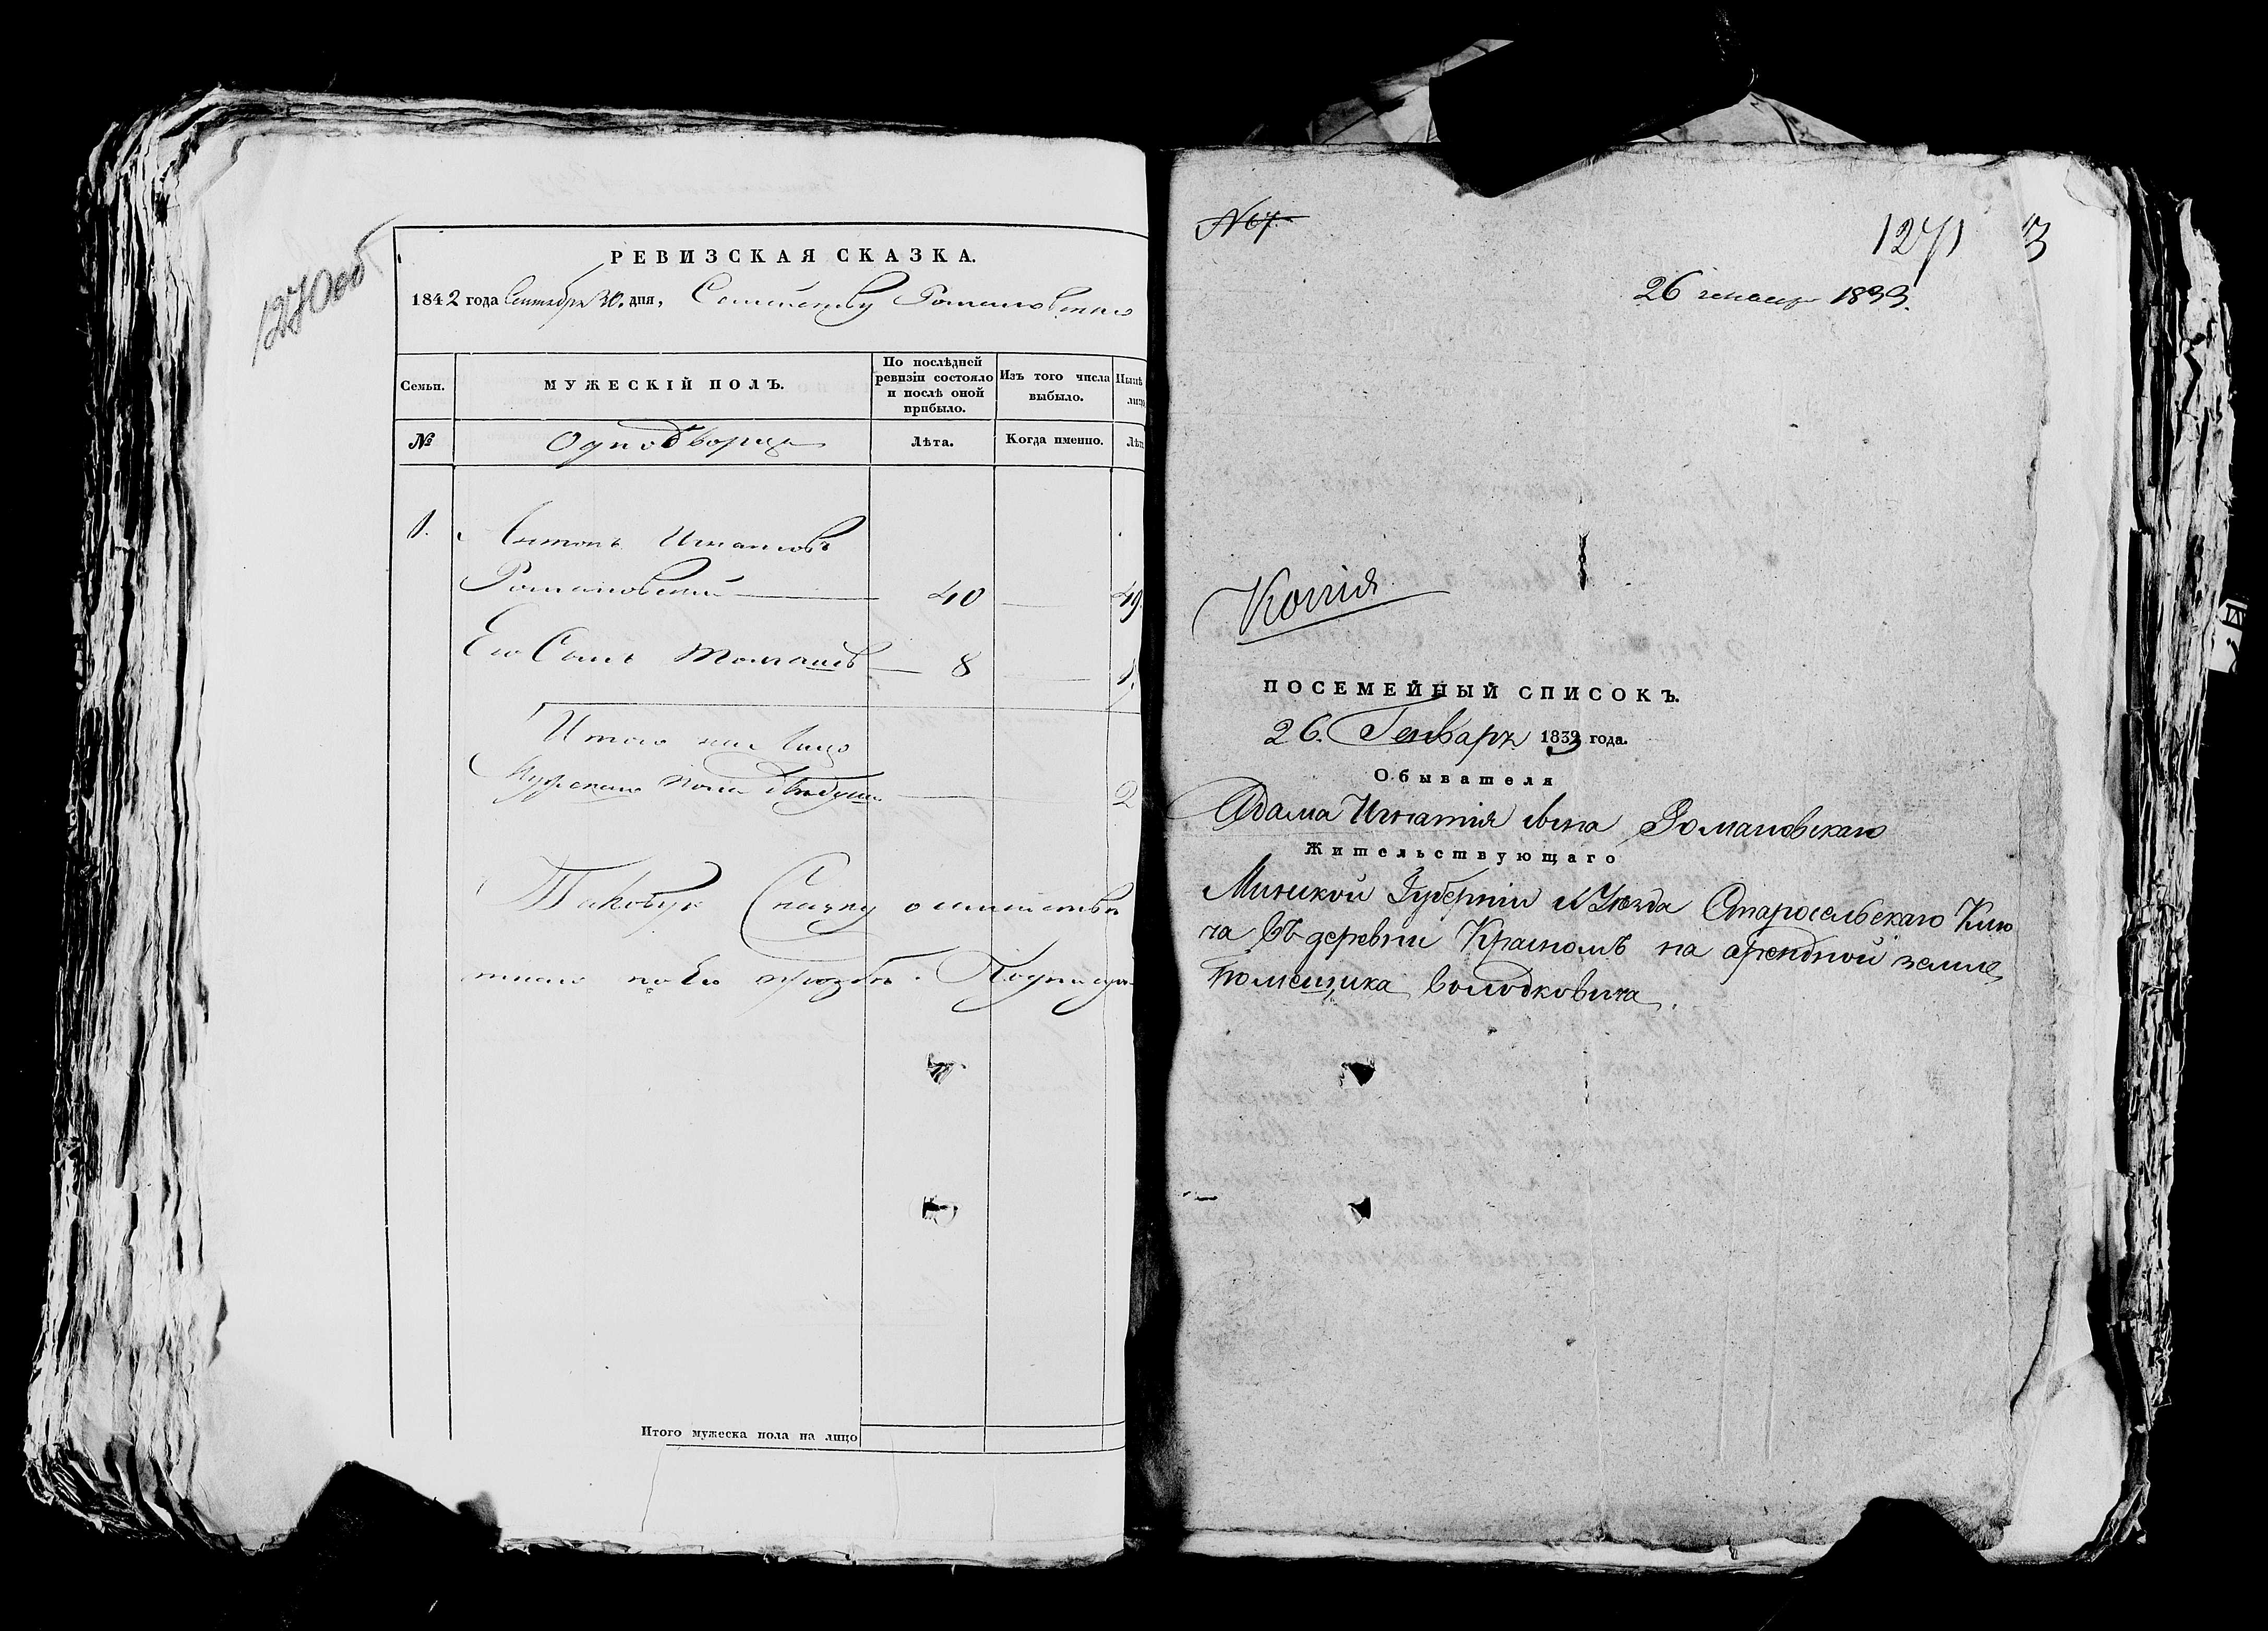 1270 об
РЕВИЗСКАЯ СКАЗКА.
1842 года Сентября 30. дня, Семейству Романовскаго
Семьи.
МУЖЕСКІЙ ПОЛЪ.
По послѣдней
ревизіи состояло
и послѣ оной
прибыло.
Изъ того числа
выбыло.
Нынѣ
лицо
№
Однодворцы
Лѣта.
Когда именно.
Лѣт
1. Антонъ Игнатовъ
Романовскій 40 49.
Его Сынъ 8
Итого на лицо
Мужеска пола двѣ души 2
Таковую Сказку о семействѣ
по его прозбѣ.
Итого мужеска пола на лицо
№ 7.
1271 3
26 генваря 1833.
Копія
ПОСЕМЕЙНЫЙ СПИСОКЪ.
26. Генваря 1833 года.
Обывателя
Адама Игнатія сына Романовскаго
Жительствующаго
Минской Губерніи и Уѣзда Старосельскаго Клю
ча въ деревни Красномъ на арендной земле
помещика Володковича.